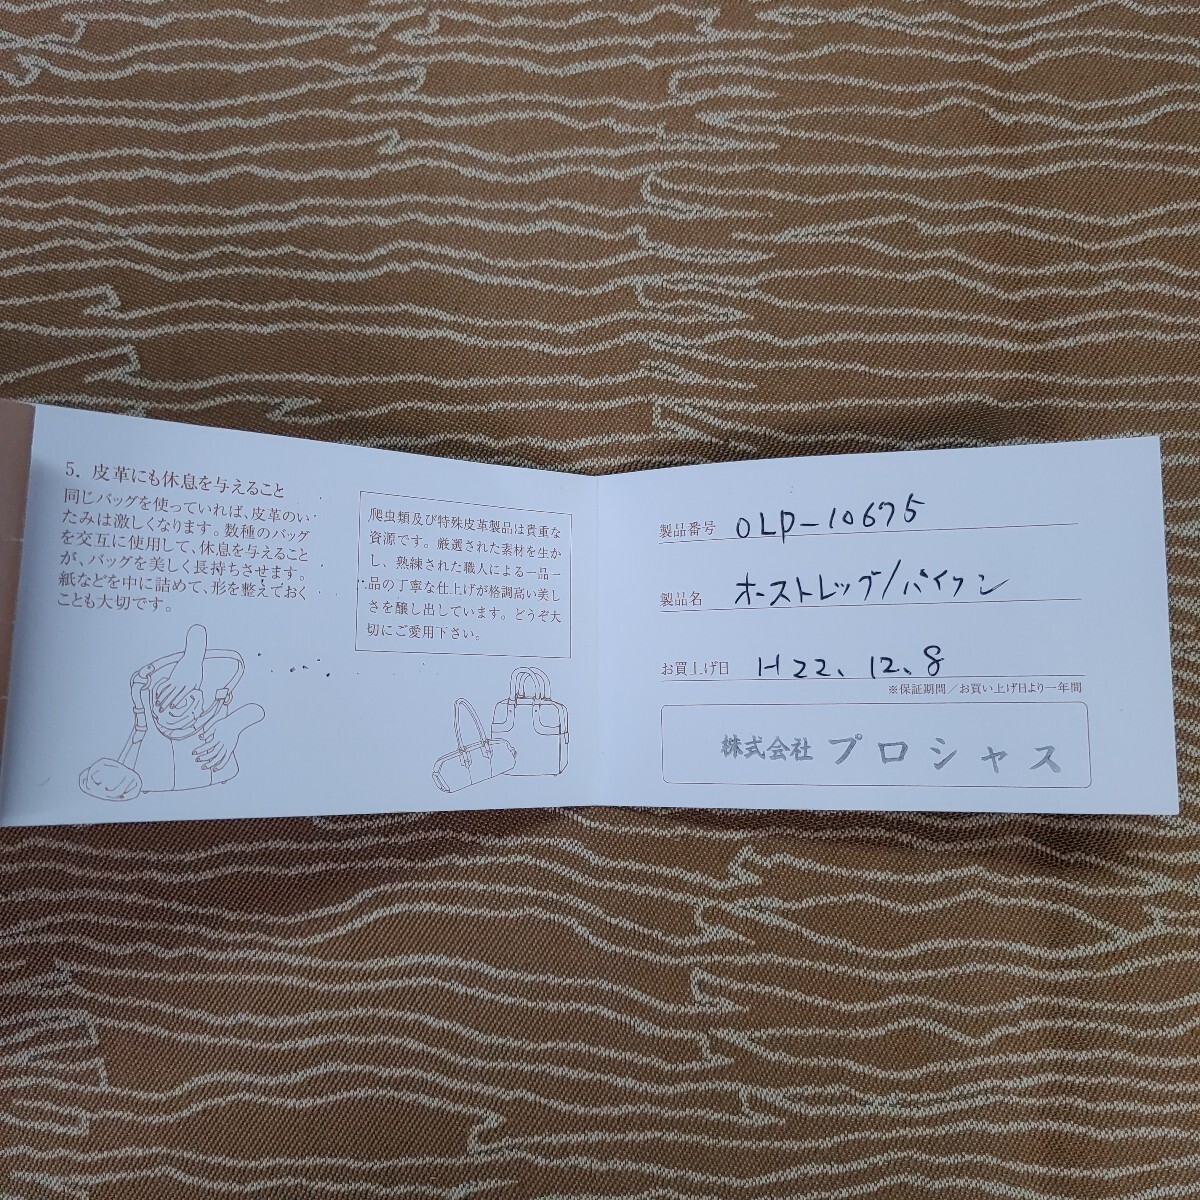 5. 皮革にも休息を与えること
同じバッグを使っていれば、皮革のい
たみは激しくなります。数種のバッグ
を交互に使用して、休息を与えること
が、バッグを美しく長持ちさせます。
紙などを中に詰めて、形を整えておく
ことも大切です。
爬虫類及び特殊皮革製品は貴重な
資源です。厳選された素材を生か
し、熟練された職人による一品一
品の丁寧な仕上げが格調高い美し
さを醸し出しています。どうぞ大
切にご愛用下さい。
製品番号 OLP-10675
製品名 オーストレッグ/パイソン
お買上げ日 H22、12、8
※保証期間/お買い上げ日より一年間
株式会社 プロシャス